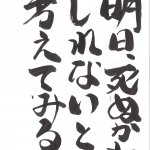 明日、死ぬかも
しれないと
考えてみる